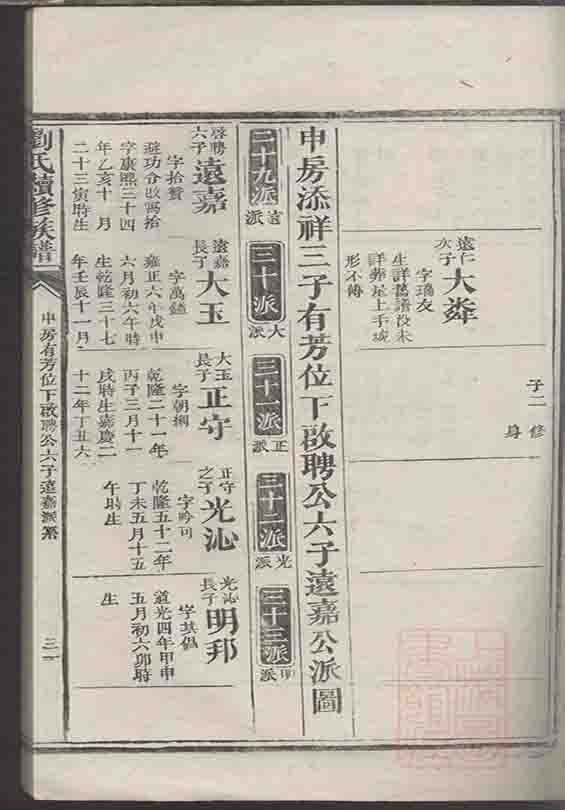 遠仁
次子
大粦
字瑞友
生詳舊譜沒未
詳葬屋上手坡
形不傳
子二
修
身
申房添祥三子有芳位下啟聘公六子遠嘉公派圖
二十九派
遠派
三十派
大派
三十一派
正派
三十二派
光派
三十三派
明派
啓聘
六子
遠嘉
字拾贊
避功令改寫拾
字康熙三十四
年乙亥十月
二十三寅時生
遠嘉
長子
大玉
字萬鎰
雍正六年戊申
六月初六午時
生乾隆三十七
年壬辰十一月
大玉
長子
正守
字朝綱
乾隆二十一年
丙子三月十一
戌時生嘉慶二
十二年丁丑六
正守
之子
光沁
字吟可
乾隆五十二年
丁未五月十五
午時生
光沁
長子
明邦
字其倡
道光四年甲申
五月初六卯時
生
劉氏續修族譜
申房有芳位下啟聘公六子遠嘉派系
三一